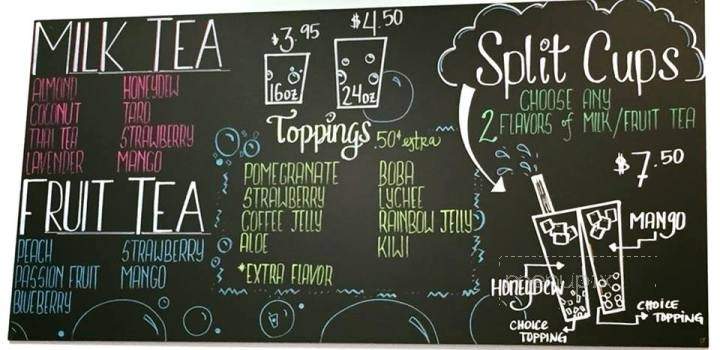 MILK TEA
ALMOND HONEYDEW
COCONUT TARO
THAI TEA STRAWBERRY
LAVENDER MANGO
FRUIT TEA
PEACH STRAWBERRY
PASSION FRUIT MANGO
BLUEBERRY
$3.95 $4.50
16oz 24oz
Toppings .50¢ extra
POMEGRANATE BOBA
STRAWBERRY LYCHEE
COFFEE JELLY RAINBOW JELLY
ALOE KIWI
*EXTRA FLAVOR
Split Cups
CHOOSE ANY
2 FLAVORS of MILK/FRUIT TEA
$7.50
MANGO
HONEYDEW
CHOICE TOPPING
CHOICE TOPPING